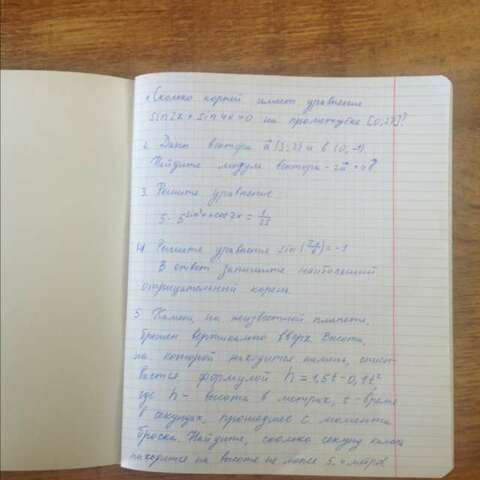 1. Сколько корней имеет уравнение
sin2x + sin4x = 0 на промежутке [0, 2π]?
2. Даны вектора a и b (0, -1).
Найдите модуль вектора - 2a + 4b
3. Решите уравнение
5 · 5
4. Решите уравнения sin = -1
В ответ запишите наибольший
отрицательный корень
5. Камень, на неизвестной планете,
брошен вертикально вверх. Высота,
на которой находится камень, описы-
вается формулой h = 1,5t - 0,1t²
где h - высота в метрах, t - время
в секундах, прошедшее с момента
броска. Найдите, сколько секунд камень
находится на высоте не менее 5,4 метра